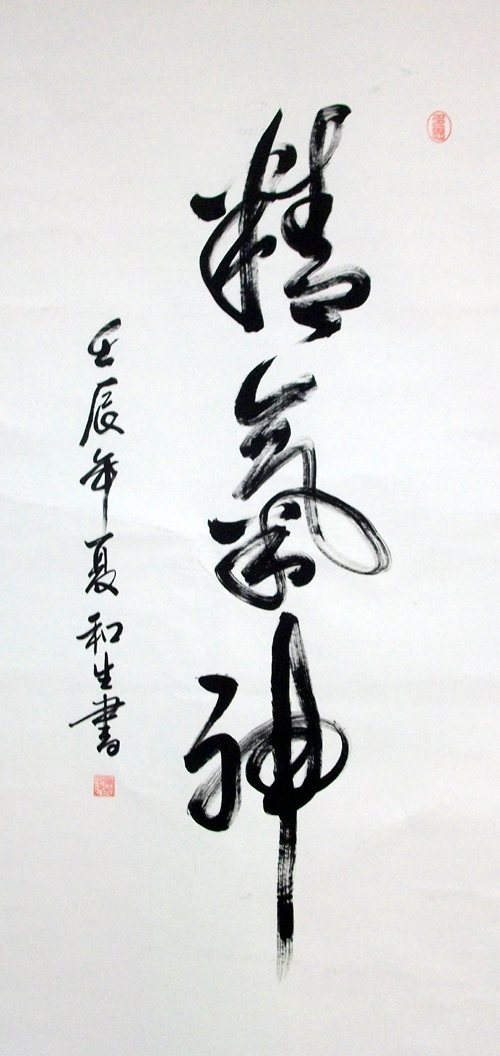 精氣神
壬辰年夏和生書